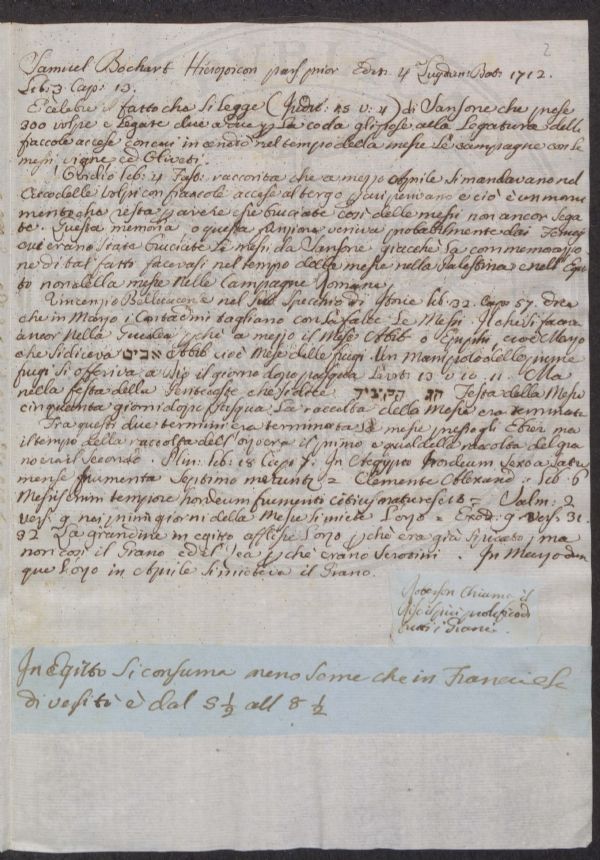 2
Samuel Bochart Hierozoicon pars prior Edit. 4 Lugdun: Bat: 1712.
Lib: 3 Cap: 13.
È celebre il fatto che si legge (Judic. 15 v: 4) di Sansone che prese
300 volpi e legate due a due p la coda gli pose alla Legatura delle
faccole accese con cui incendiò nel tempo della messe le campagne con le
messi, vigne ed Oliveti.
Ovidio lib: 4 Fast: racconta che a mezzo Aprile si mandavano nel
Circo delle Volpi con fiaccole accese al tergo
mento che resta p avere esse bruciate così delle messi non ancor sega
te. Questa memoria, o questa funzione veniva probabilmente dai Fenicj
ove erano state bruciate le messi da Sansone giacchè la commemorazio
ne di tal fatto facevasi nel tempo della messe nella Palestina e nell'Egit
to non della messe nelle Campagne Romane.
Vincenzio nel suo Specchio di Istorie lib: 32. Cap: 57. dice
che in Marzo i Contadini tagliano con la falce le Messi. Il che si facea
ancor nella Giudea p chè a mezzo il Mese Abib o cioè Marzo
che si diceva אביב Abib cioè Mese delle frugi. Un manipolo delle nuove
frugi si offeriva a Dio il giorno dopo pasqua Levit: 13 v. 10. 11. Ma
nella festa della Pentecoste che si dice חג הקציר Festa della Messe
cinquanta giorni dopo Pasqua la raccolta della messe era terminata
Fra questi due termini era terminata la messe presso gli Ebrei ma
il tempo della raccolta dell'orzo era il primo e quel della racolta del gra
no era il secondo. Plin: lib: 18 Cap: 7: In Aegypto hordeum sexto a satu
mense frumenta septimo metunt = Clemente Alexand: Lib: 6
Messis enim tempore hordeum frumenti citius maturescit = Salm: 2
vers: 9 nei primi giorni della Messe si miete l'orzo = Exod: 9 vers: 31.
32 La grandine in egitto afflisse l'orzo p chè era già spicato; ma
non così il Grano ed el'zea p chè erano serotini. In Marzo dun
que l'orzo in Aprile si mieteva il Grano.
chiama il
più prolifico di
tutti i Grani.
In Egitto si consuma meno seme che in Francia la
diversità è dal 5 ½ all 8 ½